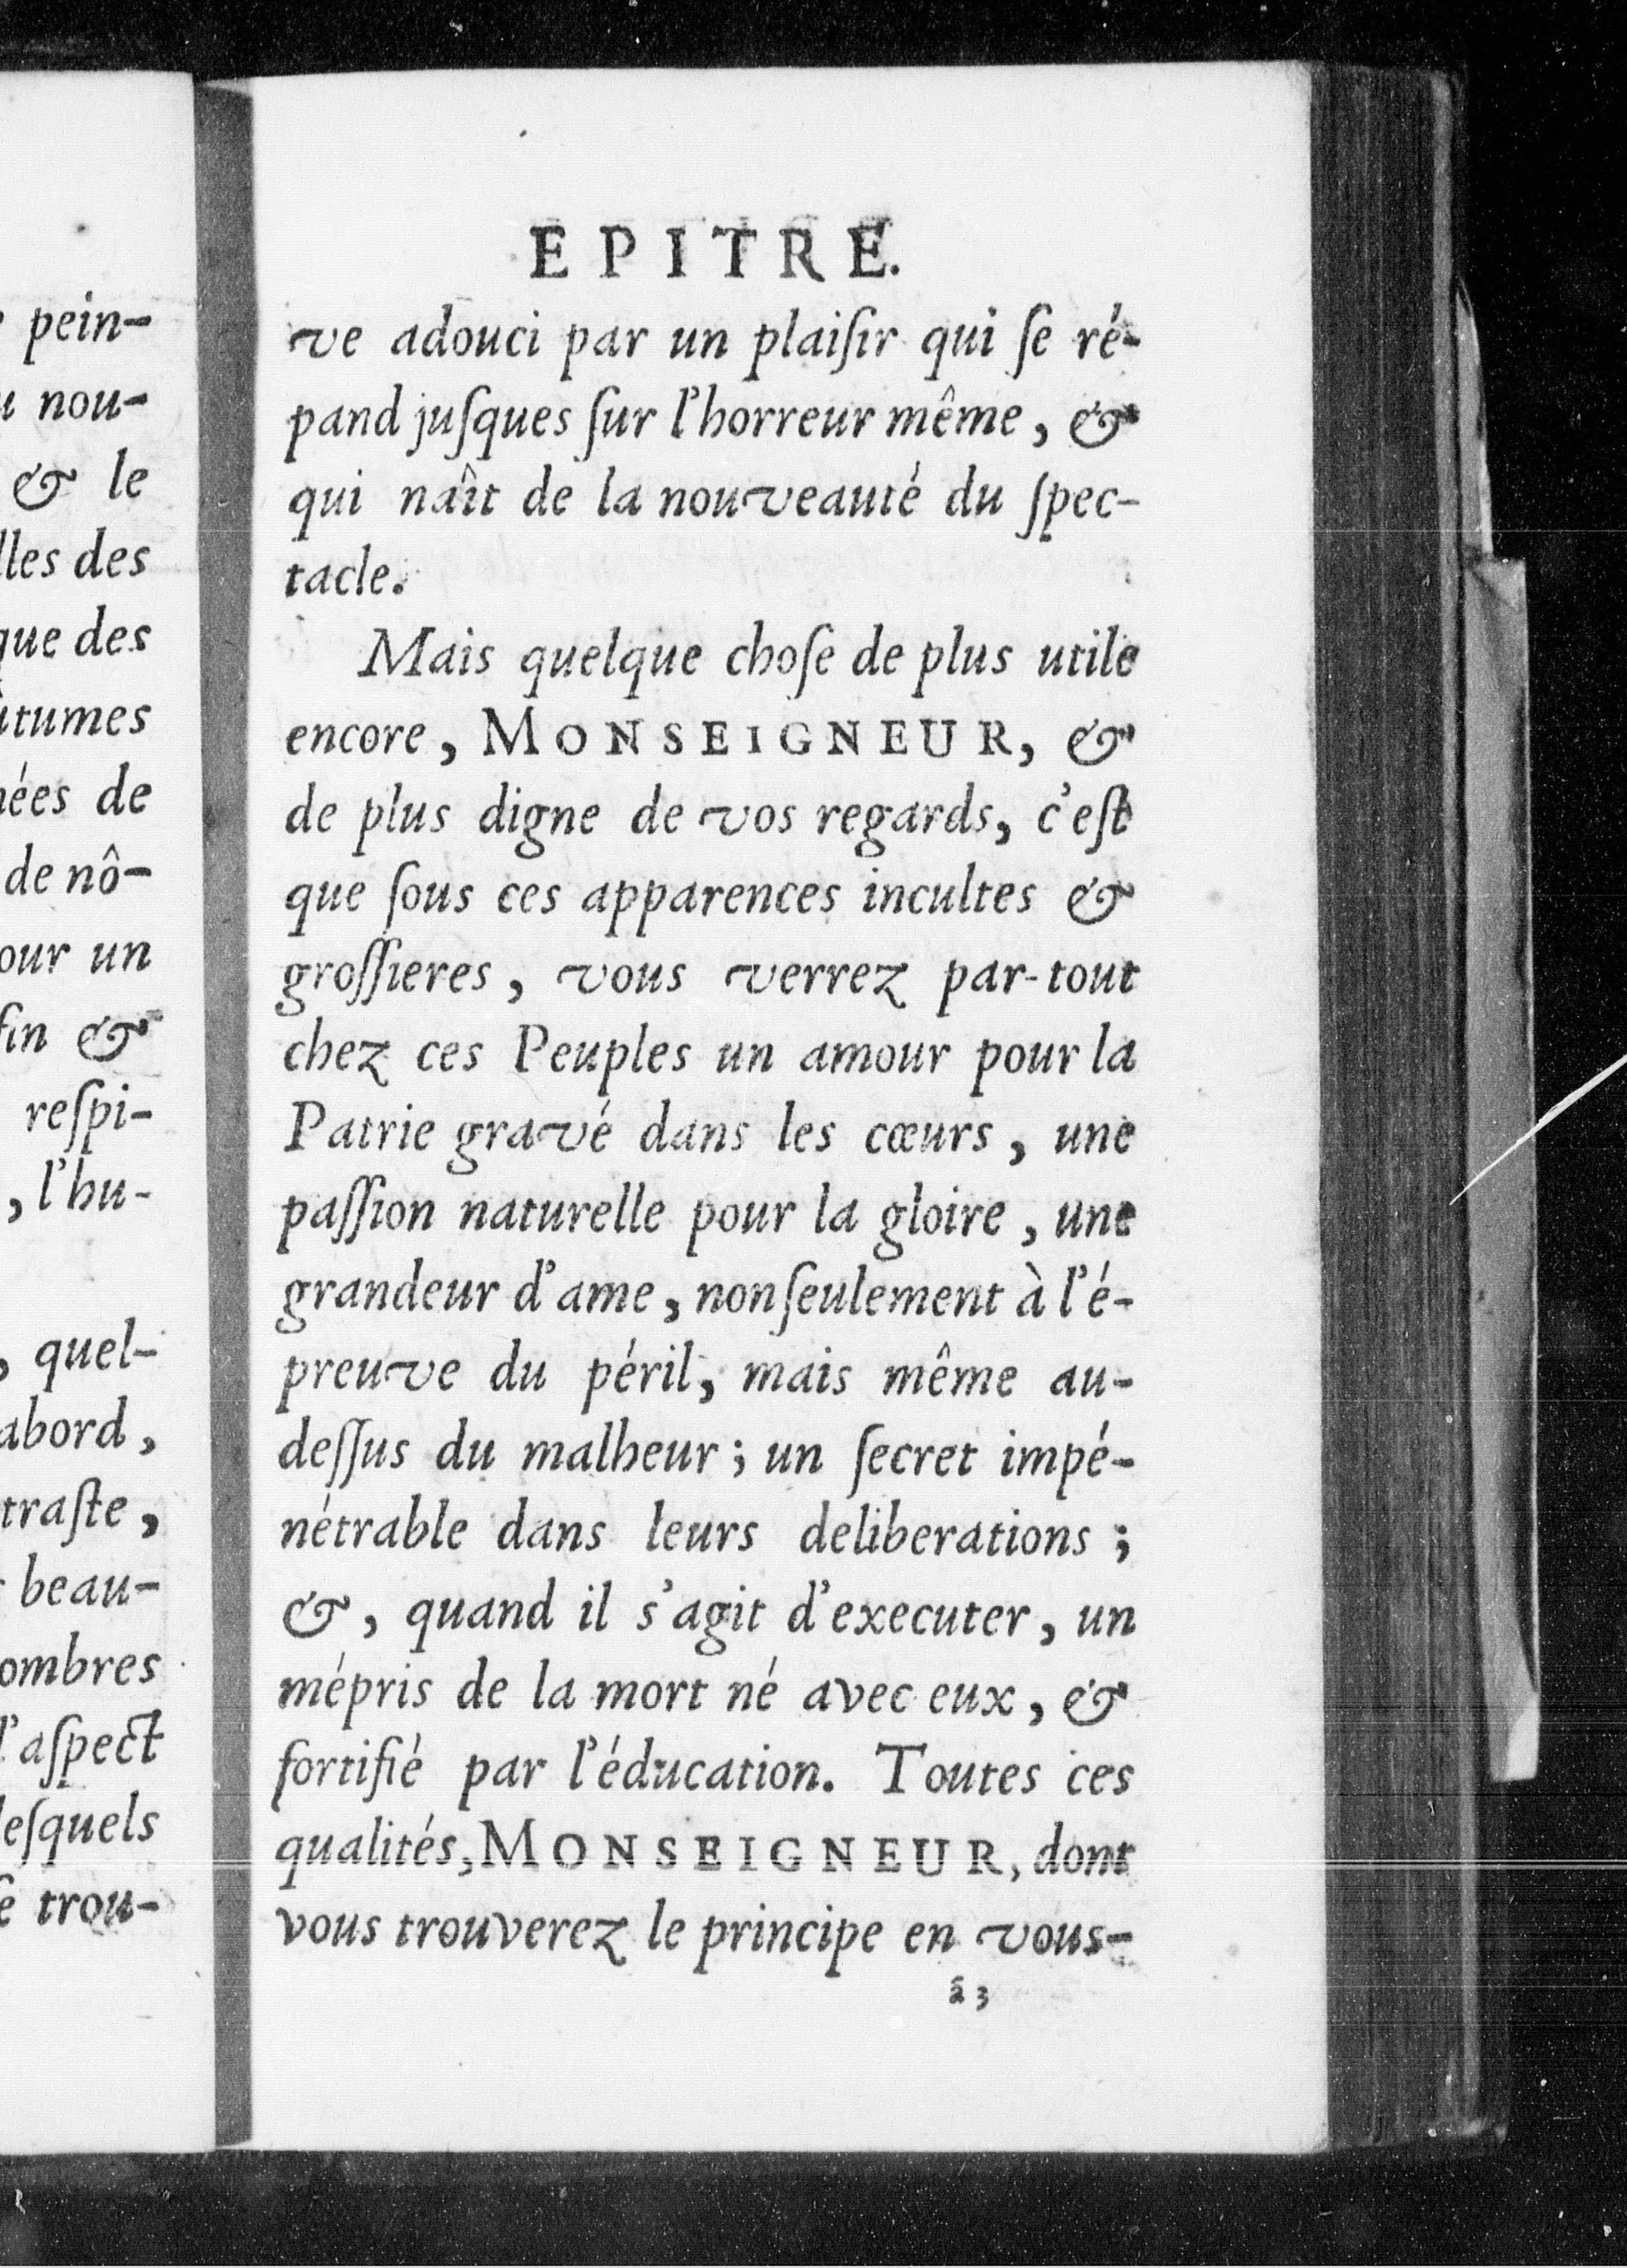 pein-
nou-
& le
des
que des
de
de nô-
un
&
respi-
, l'hu-
, quel-
abord,
beau-
ombres
l'aspect
trou-
EPITRE.
ve adouci par un plaiſir qui ſe ré-
pand juſques ſur l'horreur même, &
qui naît de la nouveauté du ſpec-
tacle.
Mais quelque choſe de plus utile
encore, MONSEIGNEUR, &
de plus digne de vos regards, c'eſt
que ſous ces apparences incultes &
groſſieres, vous verrez par-tout
chez ces Peuples un amour pour la
Patrie gravé dans les cœurs, une
paſſion naturelle pour la gloire, une
grandeur d'ame, nonſeulement à l'é-
preuve du péril, mais même au-
deſſus du malheur; un ſecret impé-
nétrable dans leurs deliberations;
&, quand il s'agit d'executer, un
mépris de la mort né avec eux, &
fortifié par l'éducation. Toutes ces
qualités, MONSEIGNEUR, dont
vous trouverez le principe en vous-
ã 3